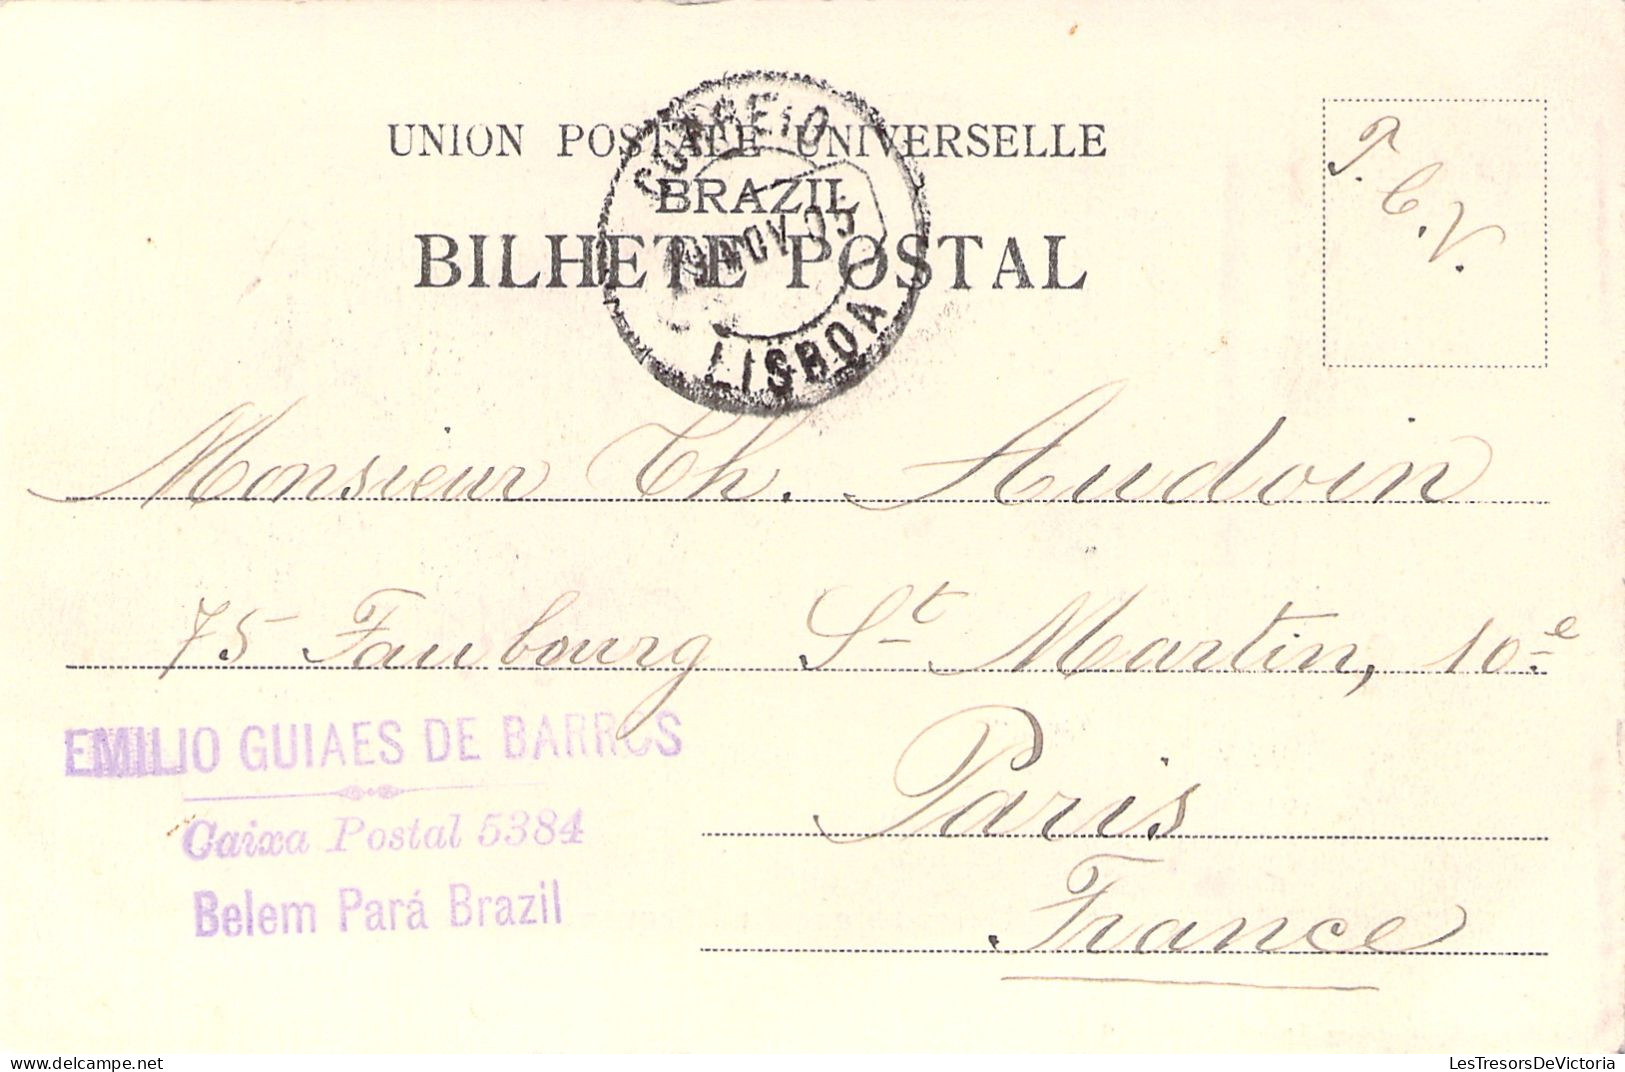 UNION POSTALE UNIVERSELLE
BRAZIL
BILHETE POSTAL
CORREIO
NOV. 05
LISBOA
T. C. V.
Monsieur Th. Audoin
75 Faubourg St Martin, 10e
Paris
France
EMILIO GUIAES DE BARROS
Caixa Postal 5384
Belem Pará Brazil
LesTresorsDeVictoria
delcampe.net